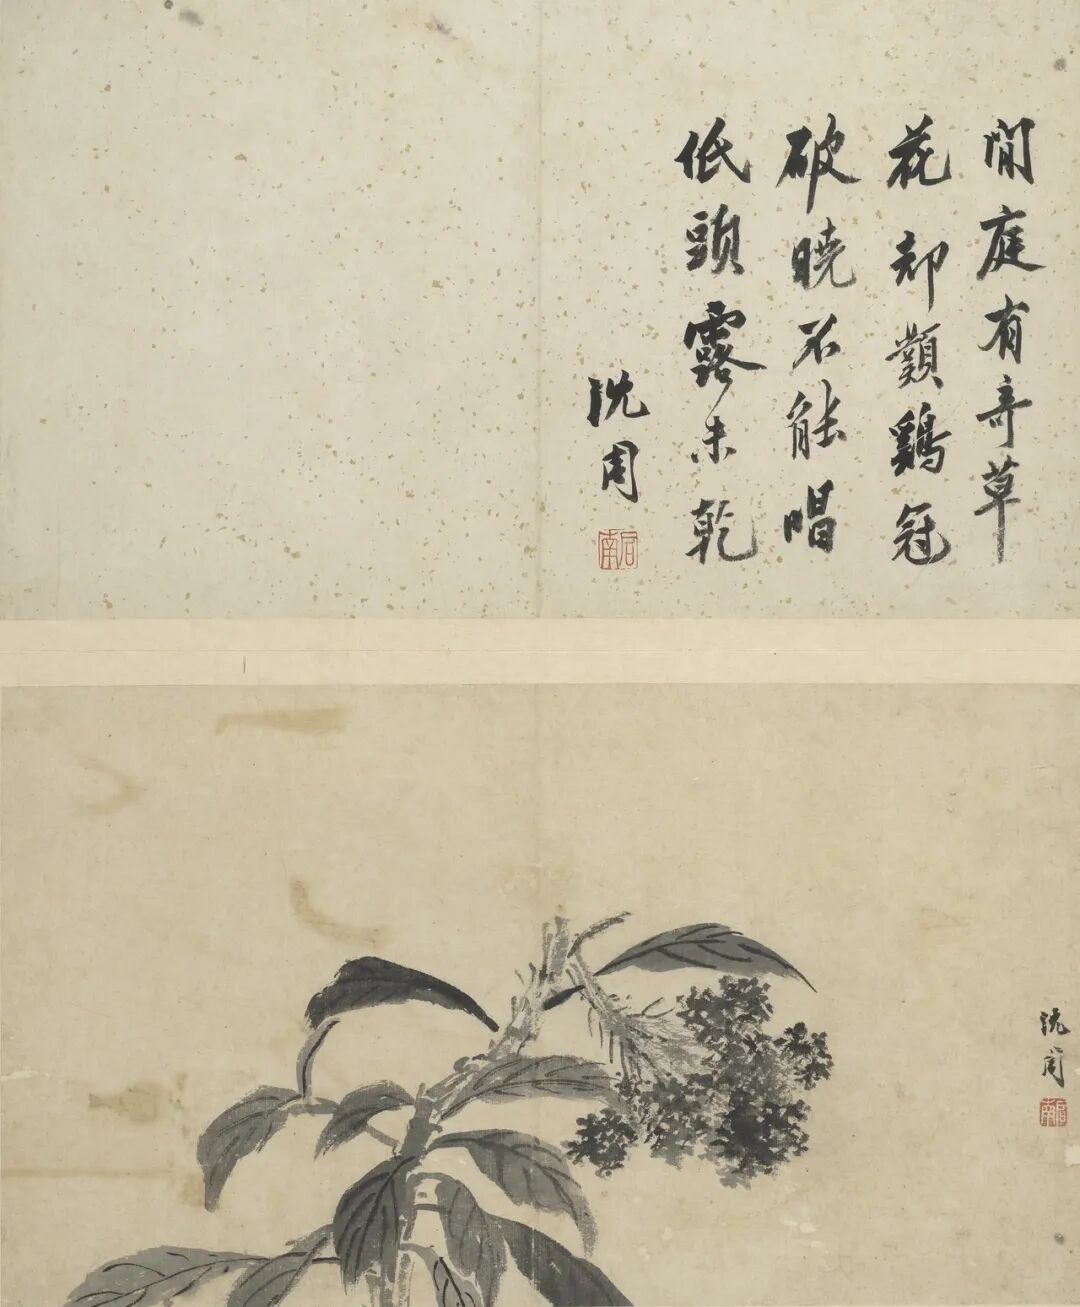 閒庭有奇草
花却類鷄冠
破曉不能唱
低頭露未乾
沈周
啟南
沈周
啟南